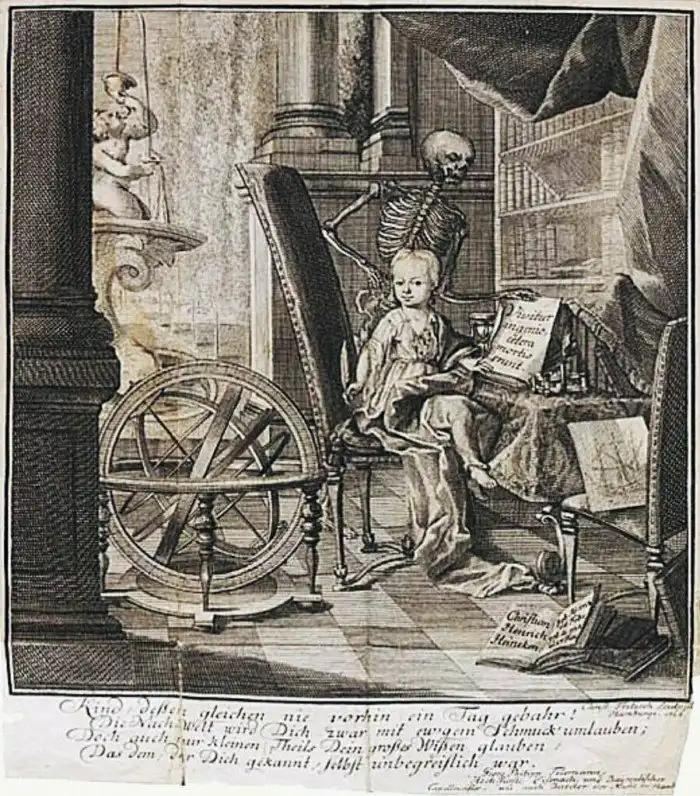 Vivitur
ingenio,
cetera
mortis
erunt.
Christian
Henrich
Heineken,
Kind, deßen gleichen nie vorhin ein Tag gebahr!
Die Nach-Welt wird Dich zwar mit ewgem Schmuck umlauben;
Doch auch nur kleinen Theils Dein großes Wißen glauben,
Das dem, der Dich gekannt, selbst unbegreiflich war.
Christ. Fritzsch Sculpsit
Hamburgi.
Georg Philipp Telemann,
Hoch-Fürstl. Eisenach, und Bayreuthischer
Capellmeister, wie auch Director der Music in Hamb.